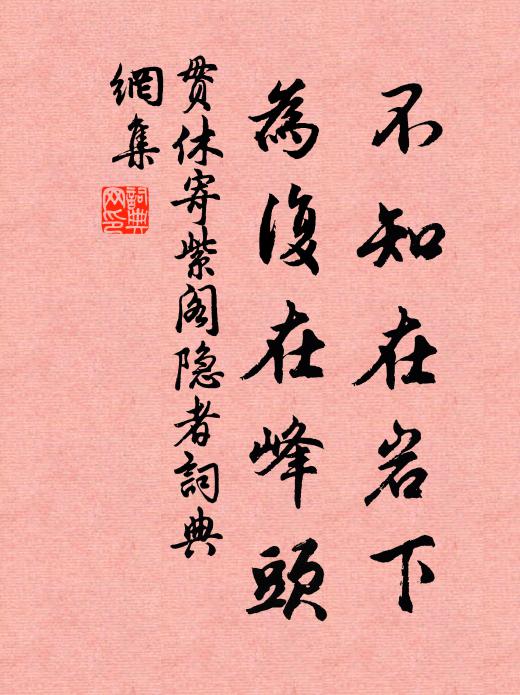 不知在岩下
為復在峰頭
贯休寄紫阁隐者詞典
網集
詞典
网印